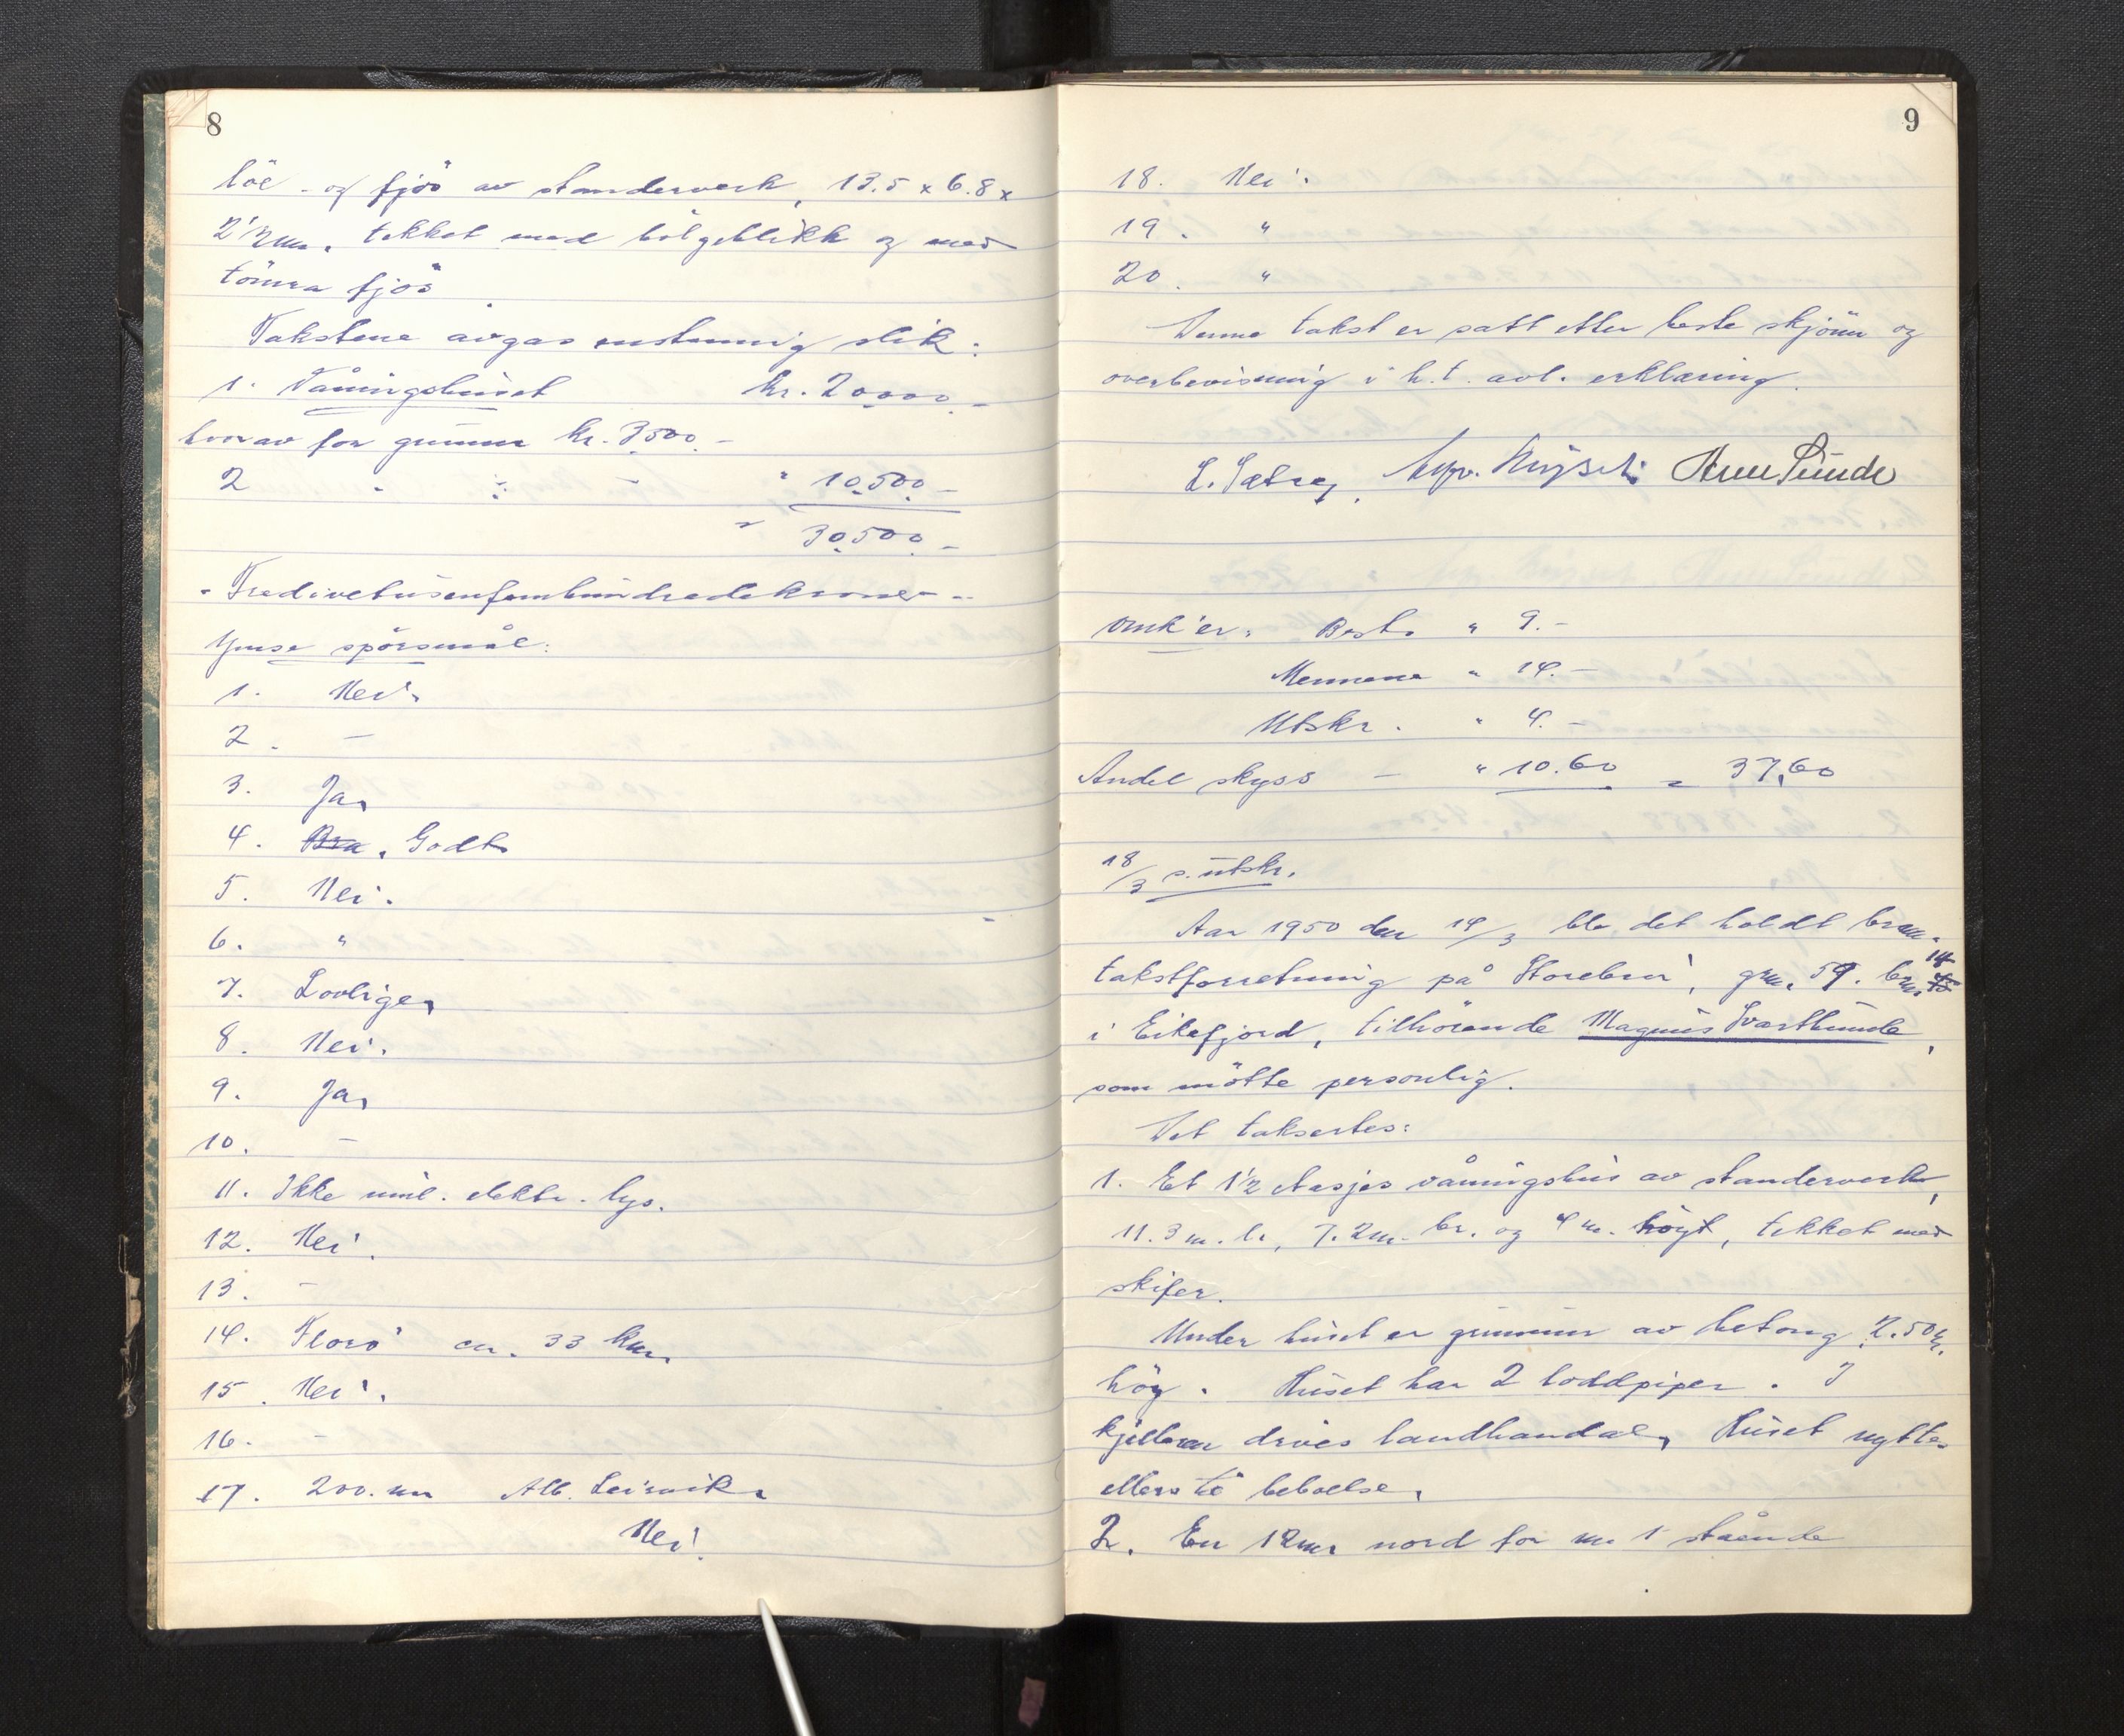 8
löe - og fjös av standerverk, 13.5 x 6.8 x
2 1/2 m. tekket med bölgeblikk og med
tömra fjös.
Takstene avgas enstemmig slik:
1. Våningshuset kr. 20000.-
hvorav for grunnm kr. 3500.-
2 " " - " 10.500 -
" 30500.-
- Tredivetusenfemhundredekroner --
Ymse spörsmål:
1. Nei.
2. -
3. Ja,
4. Bra. Godt.
5. Nei.
6. "
7. Lovlige,
8. Nei.
9. Ja,
10. -
11. Ikke innl. elektr. lys.
12. Nei.
13. -
14. Florö ca. 33 km.
15. Nei.
16. -
17. 200. m Alb. Leirvik.
Nei.
9
18. Nei.
19. "
20. "
Denne takst er satt etter beste skjönn og
overbevisning i h.t. avl. erklæring.
L. Sætrey, Arne Sunde
Omk'er. Best. " 9.-
Mennene " 14.-
Utskr. " 4.-
Andel skyss - " 10.60 = 37,60
18/3 s. utskr.
Aar 1950 den 14/3 ble det holdt brann-
takstforretning på Storebru, gnr. 59. bnr. 14
i Eikefjord, tilhörende Magnus Svarthumle,
som mötte personlig.
Det taksertes:
1. Et 1 1/2 etasjes våningshus av standerverk,
11.3 m. l., 7.2 m. br. og 4 m. höyt, tekket med
skifer.
Under huset er grunnmur av betong 2.50 m.
höy. Huset har 2 loddpiper. I
kjelleren drives landhandel, Huset nyttes
ellers til beboelse.
2. En 12 m nord for nr 1 stående